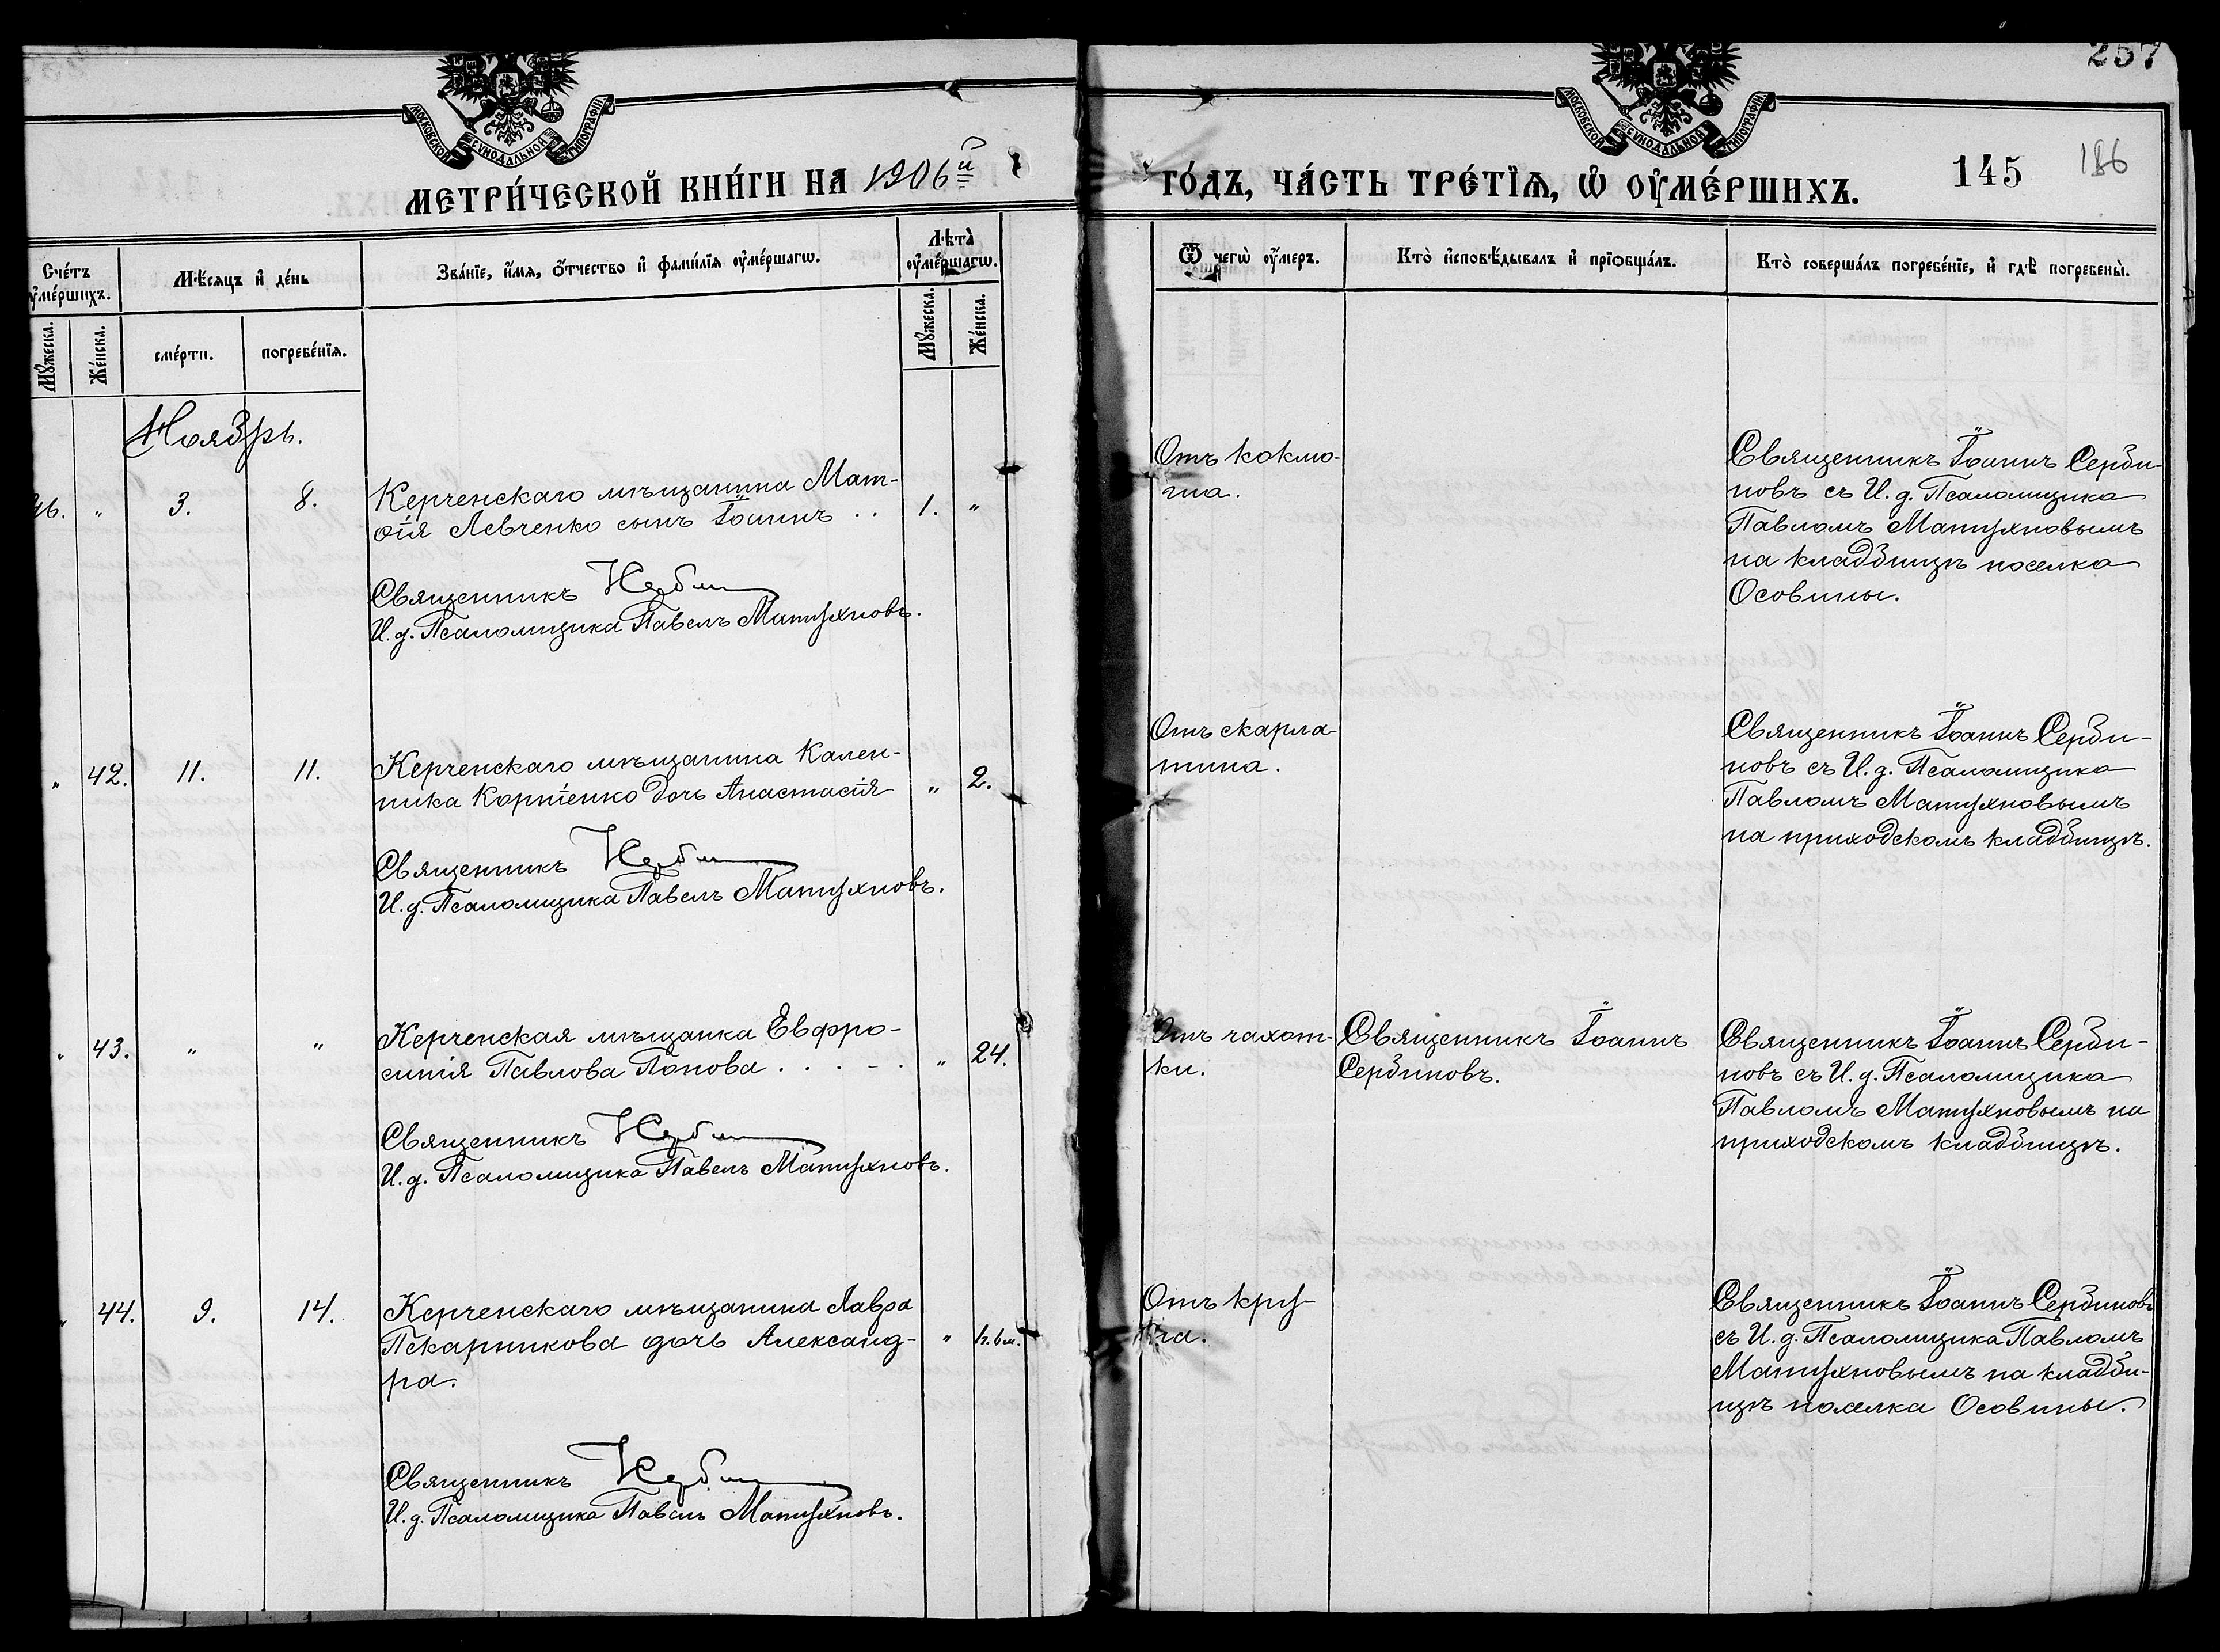 257
МОСКОВСКОЙ СУНОДАЛЬНОЙ ТИПОГРАФІИ
МОСКОВСКОЙ СУНОДАЛЬНОЙ ТИПОГРАФІИ
МЕТРИ́ЧЕСКОЙ КНИ́ГИ НА 1906й
ГО́ДЪ, ЧА́СТЬ ТРЕ́ТЇѦ, Ѡ҆ ОУ҆МЕ́РШИХЪ.
145 186
Сче́тъ оу҆ме́ршихъ.
Мѣ́сѧцъ и҆ де́нь
Зва́нїе, и҆́мѧ, ѻ҆́тчество и҆ фами́лїѧ оу҆ме́ршагѡ.
Лѣта̀ оу҆ме́ршагѡ.
Ѿ чегѡ̀ оу҆́меръ.
Кто̀ и҆сповѣ́дывалъ и҆ прїѡбща́лъ.
Кто̀ соверша́лъ погребе́нїе, и҆ гдѣ̀ погребены̀.
Мꙋ́жеска.
Же́нска.
сме́рти.
погребе́нїѧ.
Мꙋ́жеска.
Же́нска.
Ноябрь.
46. " 3. 8. Керченскаго мѣщанина Мат-
ѳія Левченко сынъ Іоаннъ . . 1. "
Священникъ
И. д. Псаломщика Павелъ Матухновъ.
Отъ коклю-
ша.
Священникъ Іоаннъ Серби-
новъ съ И. д. Псаломщика
Павломъ Матухновымъ
на кладбищѣ поселка
Осовины.
" 42. 11. 11. Керченскаго мѣщанина Кален-
ника Корніенко дочь Анастасія " 2.
Священникъ
И. д. Псаломщика Павелъ Матухновъ.
Отъ скарла-
тина.
Священникъ Іоаннъ Серби-
новъ съ И. д. Псаломщика
Павломъ Матухновымъ
на приходскомъ кладбищѣ.
" 43. " " Керченская мѣщанка Евфро-
синія Павлова Попова . . . . . " 24.
Священникъ
И. д. Псаломщика Павелъ Матухновъ.
Отъ чахот-
ки.
Священникъ Іоаннъ
Сербиновъ.
Священникъ Іоаннъ Серби-
новъ съ И. д. Псаломщика
Павломъ Матухновымъ на
приходскомъ кладбищѣ.
" 44. 9. 14. Керченскаго мѣщанина Лавра
Пскарникова дочь Александ-
ра.
Священникъ
И. д. Псаломщика Павелъ Матухновъ.
Отъ кру-
па.
Священникъ Іоаннъ Сербиновъ
съ И. д. Псаломщика Павломъ
Матухновымъ на кладби-
щѣ поселка Осовины.